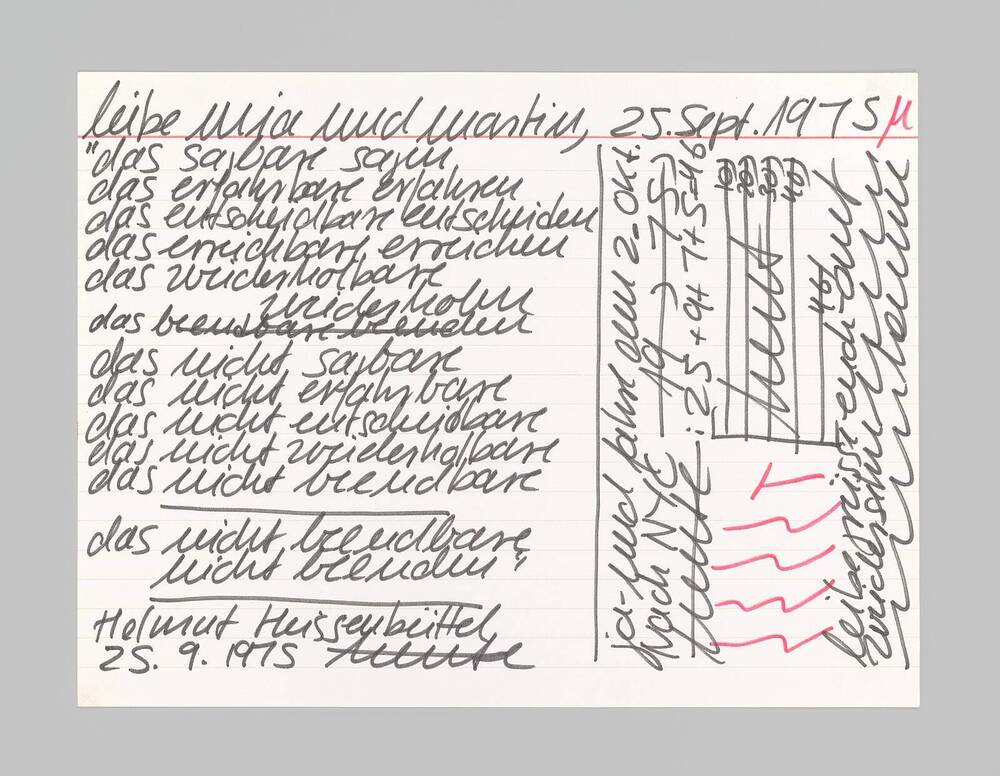 leibe mia und martin, 25. Sept. 1975 µ
"das sagbare sagen
das erfahrbare erfahren
das entscheidbare entscheiden
das erreichbare erreichen
das wiederholbare
wiederholen
das beendbare beenden
das nicht sagbare
das nicht erfahrbare
das nicht entscheidbare
das nicht wiederholbare
das nicht beendbare
das nicht beendbare
nicht beenden"
Helmut Heissenbüttel
25. 9. 1975 heute
ja - und fahre am 2. Okt.
nach NYC 19 75
heute : 25+9+7+5=46
10)
20)
30)
40)
heute
46)
euch
hanne